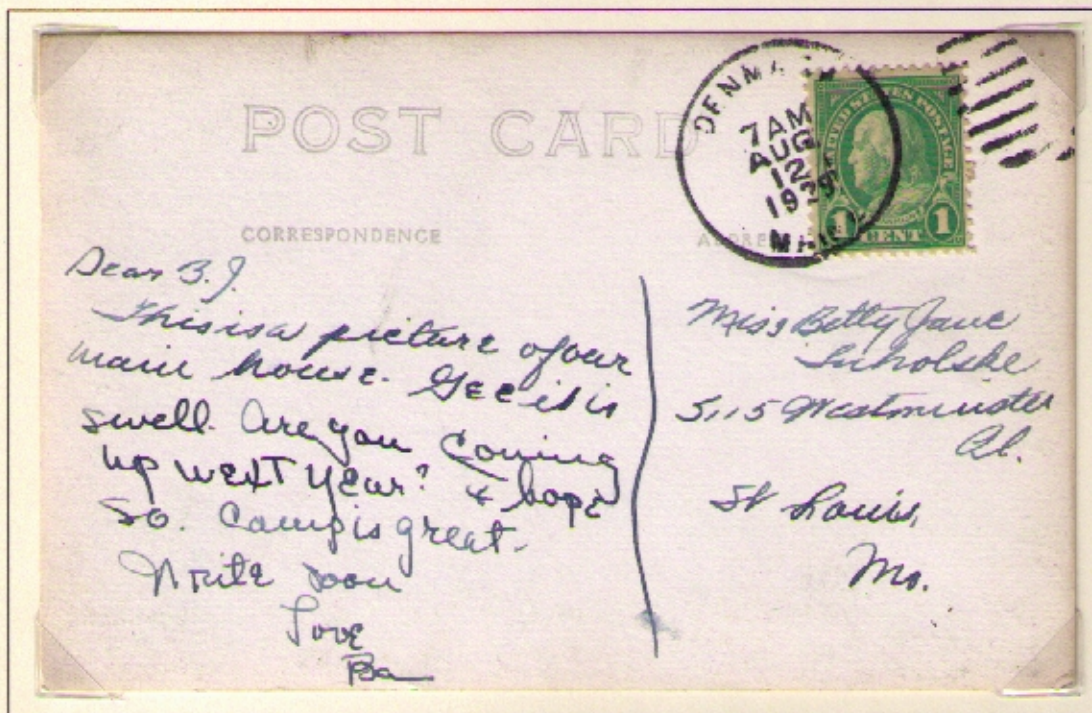 POST CARD
DENMA
7AM
AUG
12
1929
UNITED STATES POSTAGE
1 CENT 1
CORRESPONDENCE
Dear B.J.
This is a picture of our
main house. Gee it is
swell. Are you coming
up next year? I hope
so. Camp is great.
Write soon
Love
Miss Betty Jane
5115 Westminster
Pl.
St Louis,
Mo.